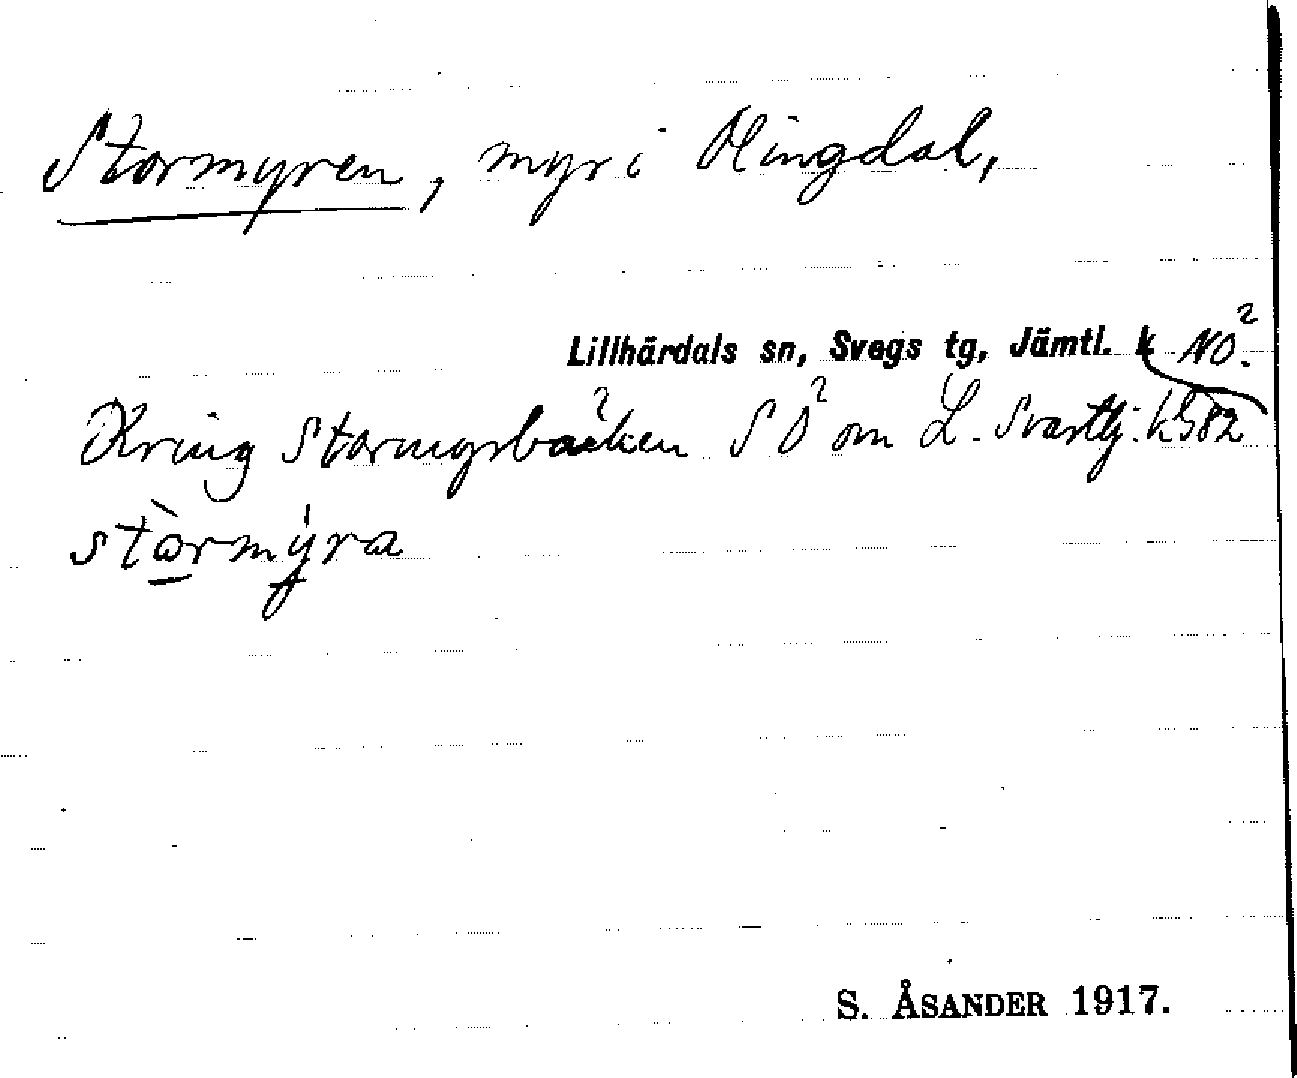 Stormyren, myr i Olingdal,
Lillhärdals sn, Svegs tg, Jämtl. k NO.²
Kring Stormyrbäcken SO² om L. Svarttj. k582
stòrmýra
S. ÅSANDER 1917.